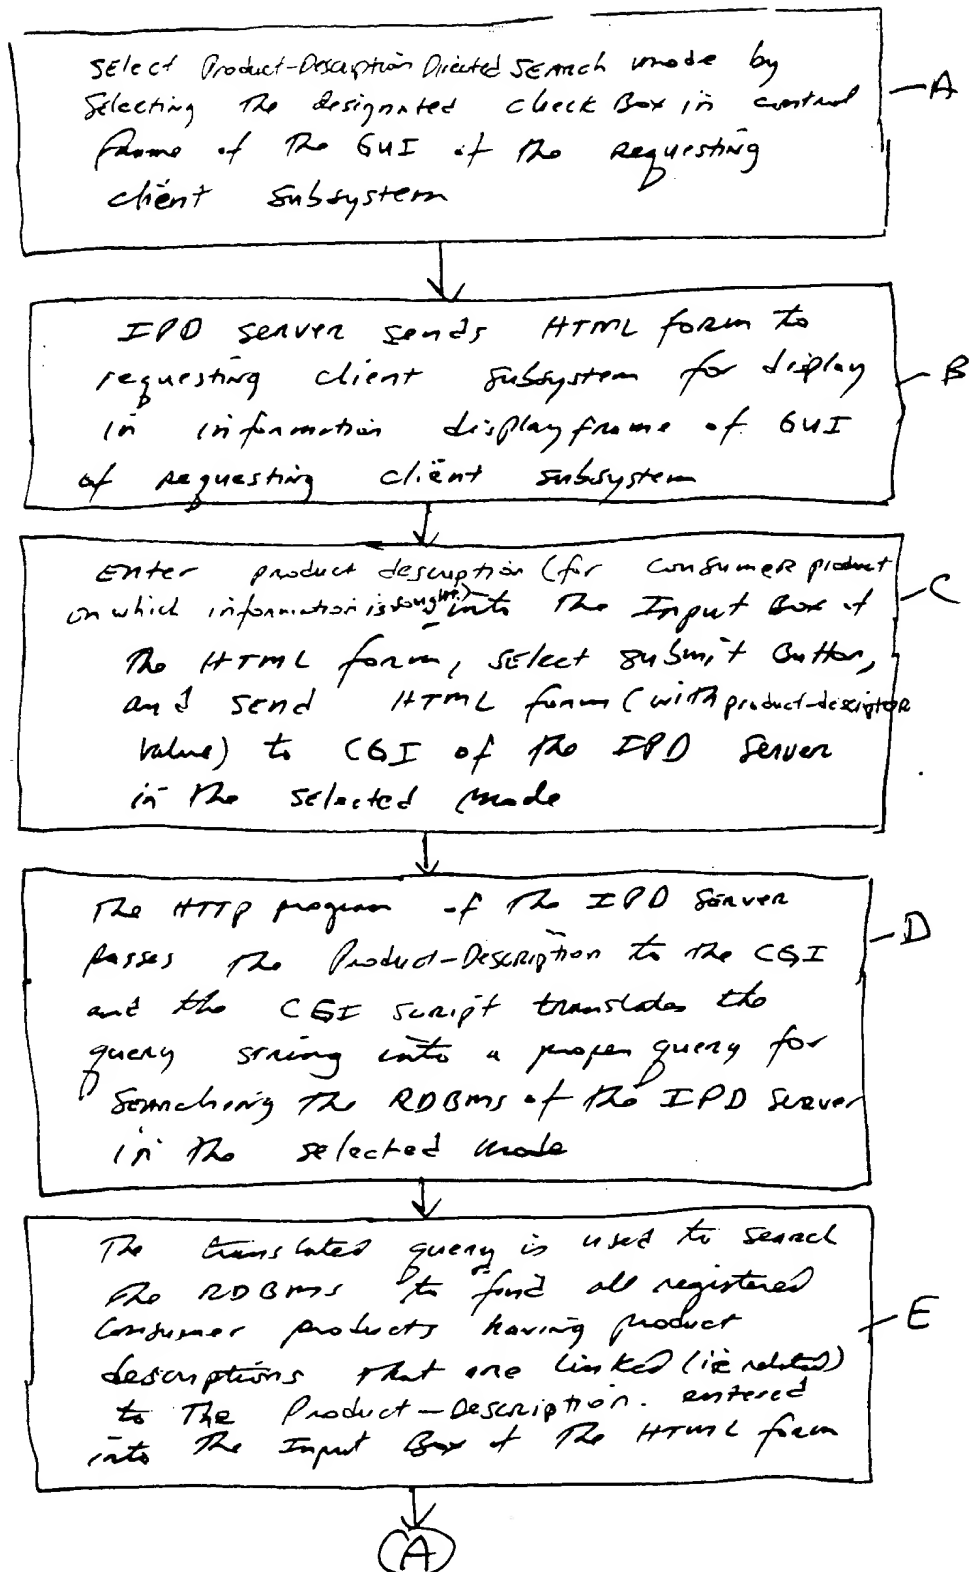 Select Product-Description Directed Search mode by
selecting the designated check Box in control
frame of the GUI of the requesting
client subsystem
A
IPD server sends HTML form to
requesting client subsystem for display
in information display frame of GUI
of requesting client subsystem
B
Enter product description (for consumer product
on which information is sought) into the Input Box of
the HTML form, select submit Button,
and send HTML form (with product-descriptor
value) to CGI of the IPD Server
in the selected mode
C
The HTTP program of the IPD Server
passes the Product-Description to the CGI
and the CGI script translates the
query string into a proper query for
searching the RDBMS of the IPD Server
in the selected mode
D
The translated query is used to search
the RDBMS to find all registered
Consumer products having product
descriptions that are linked (ie related)
to the Product-Description. entered
into the Input Box of the HTML form
E
A